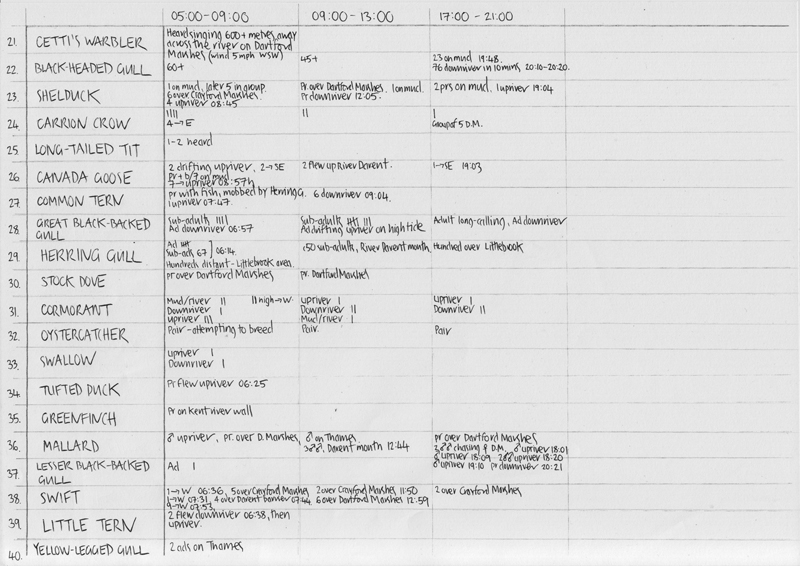 05:00-09:00 09:00 - 13:00 17:00 - 21:00
21. CETTI'S WARBLER Heard singing 600+ metres away
across the river on Dartford
Marshes (wind 5mph WSW)
22. BLACK-HEADED GULL 60+ 45+ 23 on mud 19:48.
76 downriver in 10mins 20:10-20:20.
23. SHELDUCK 1 on mud, later 5 in group. Pr over Dartford Marshes. 1 on mud. 2prs on mud. 1 upriver 19:04
6 over Crayford Marshes. Pr downriver 12:05.
4 upriver 08:45
24. CARRION CROW |||| || |
4→E Group of 5 D.M.
25. LONG-TAILED TIT 1-2 heard
26. CANADA GOOSE 2 drifting upriver, 2→SE 2 flew up River Darent. 1→SE 19:03
pr + b/7 on mud
7→upriver 08:57h
27. COMMON TERN pr with fish, mobbed by Herring G. 6 downriver 09:04.
1 upriver 07:47.
28. GREAT BLACK-BACKED GULL Sub-adults |||| Sub-adults |||| ||| Adult long-calling, Ad downriver
Ad downriver 06:57 Ad drifting upriver on high tide
29. HERRING GULL Ad ||||
Sub-ads 67 } 06:14 c50 sub-adults, River Darent mouth, Hundred over Littlebrook
Hundreds distant - Littlebrook area
30. STOCK DOVE pr over Dartford Marshes pr. Dartford Marshes
31. CORMORANT Mud/river || || high→W. upriver | upriver |
Downriver | Downriver || Downriver ||
upriver ||| Mud/river |
32. OYSTERCATCHER Pair - attempting to breed Pair. Pair
33. SWALLOW upriver |
Downriver |
34. TUFTED DUCK Pr flew upriver 06:25
35. GREENFINCH Pr on Kent river wall
36. MALLARD ♂ upriver, pr. over D. Marshes, ♂ on Thames pr over Dartford Marshes
3♂♂, Darent mouth 12:44 3♂♂ chasing ♀ D.M, ♂ upriver 18:01
♂ upriver 18:09 2♂♂ upriver 18:20
♂ upriver 19:10 pr downriver 20:21
37. LESSER BLACK-BACKED GULL Ad |
38. SWIFT 1→W 06:36, 5 over Crayford Marshes 2 over Crayford Marshes 11:50 2 over Crayford Marshes
1→W 07:31, 4 over Darent barrier 07:44 6 over Dartford Marshes 12:59
4→W 07:53
39. LITTLE TERN 2 flew downriver 06:38, then
upriver.
40. YELLOW-LEGGED GULL 2 ads on Thames